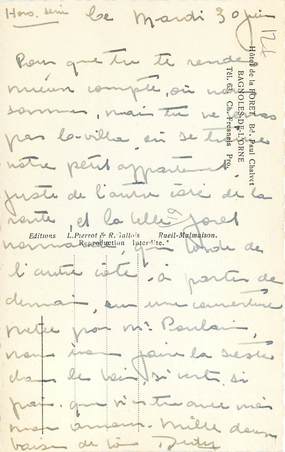 Hors série
Ce Mardi 30 juin
Pour que tu te rendes
mieux compte, où nous
sommes, mais tu ne vois
pas la ville, où se trouve
notre petit appartement
juste de l'autre côté de la
route, et la belle forêt
normande, qui borde de
l'autre côté. à partir de
demain, sur une couverture
prêtée par Mr Poulain,
nous irons faire la sieste
dans le bois, si vert, si
frais, que n'es tu avec moi
mon amour. Mille doux
baisers de ta
Hôtel de la FORET, Bd. Paul Chalvet
BAGNOLES-DE-L'ORNE
Tél. 63. Ch. Fresnais Pro.
Editions L. Pierrot & R. Gallois Rueil-Malmaison.
Reproduction Interdite.